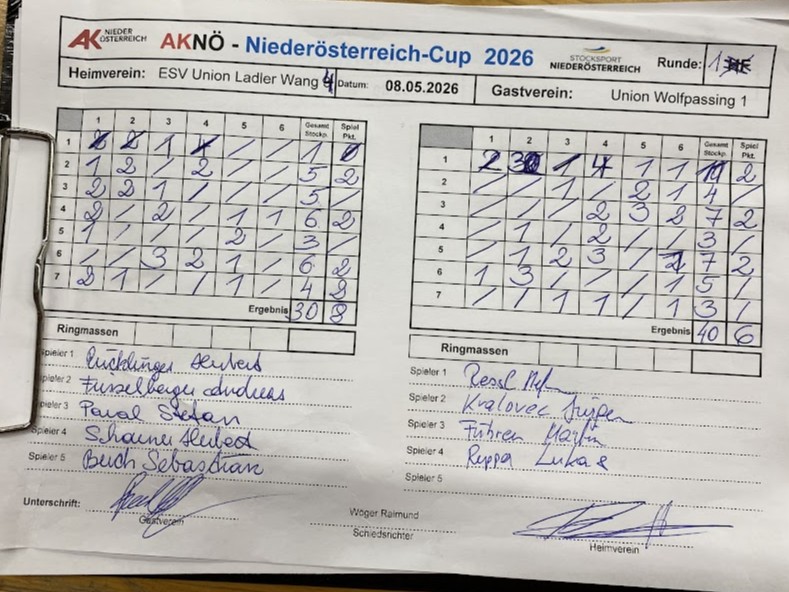 AK NIEDER ÖSTERREICH AKNÖ - Niederösterreich-Cup 2026 STOCKSPORT NIEDERÖSTERREICH Runde: 1
Heimverein: ESV Union Ladler Wang 4 Datum: 08.05.2026 Gastverein: Union Wolfpassing 1
1 2 3 4 5 6 Gesamt Stockp. Spiel Pkt.
1 / / 1
2 1 2 / 2 / / 5 2
3 2 2 1 / / / 5 /
4 2 / 2 / 1 1 6 2
5 1 / / / 2 / 3 /
6 / / 3 2 1 / 6 2
7 2 1 / / 1 / 4 2
Ergebnis 30 8
Ringmassen
Spieler 1
Spieler 2 Andreas
Spieler 3 Stefan
Spieler 4
Spieler 5 Sebastian
Unterschrift:
Gastverein
1 2 3 4 5 6 Gesamt Stockp. Spiel Pkt.
1 1 4 1 1 2
2 / / 1 / 2 1 4 /
3 / / / 2 3 2 7 2
4 / 1 / 2 / / 3 /
5 / 1 2 3 / 1 7 2
6 1 3 / / / 1 5 /
7 / / 1 1 / 1 3 /
Ergebnis 40 6
Ringmassen
Spieler 1 Ressl
Spieler 2 Kralovec Jürgen
Spieler 3 Führer Martin
Spieler 4 Reppa Lukas
Spieler 5
Wöger Raimund
Schiedsrichter
Heimverein